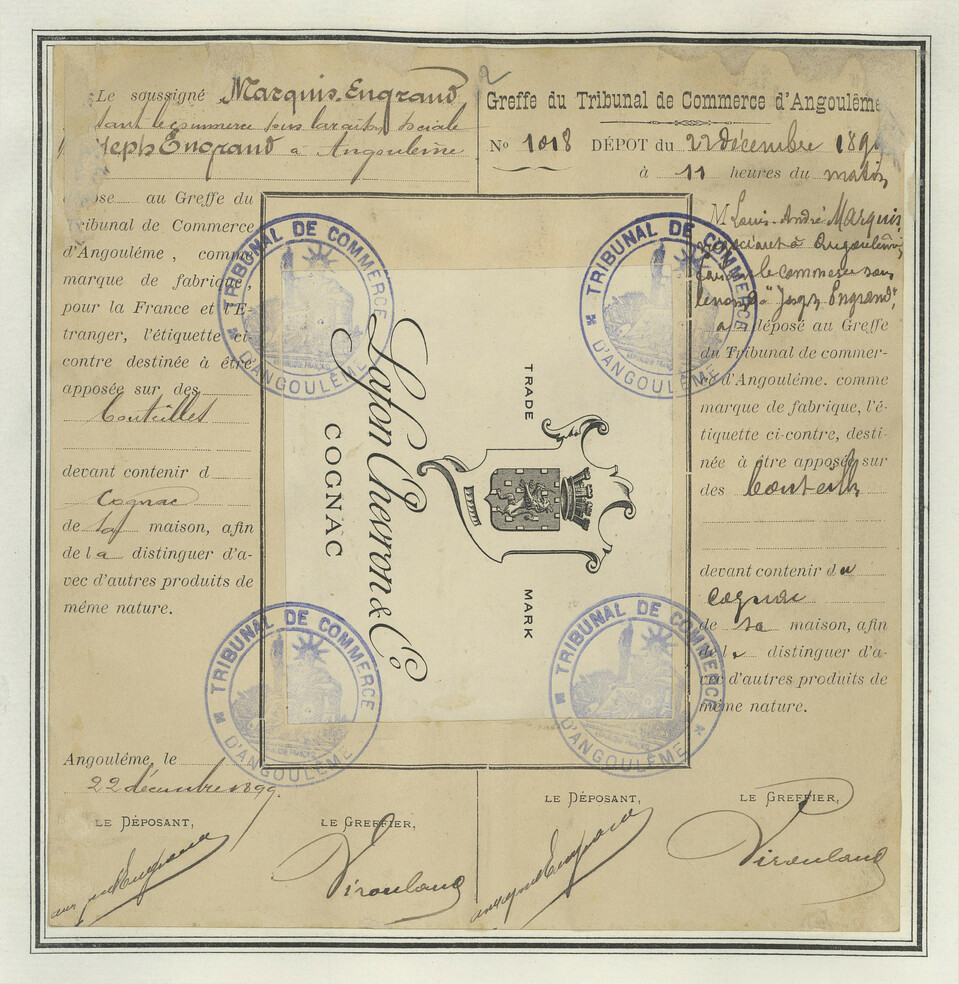 Le soussigné Marquis-Engrand
sant le commerce sous la raison sociale
seph Engrand à Angoulême
ose au Greffe du
Tribunal de Commerce
d'Angoulême, comme
marque de fabrique,
pour la France et l'É-
tranger, l'étiquette ci-
contre destinée à être
apposée sur des
bouteilles
devant contenir d
Cognac
de sa maison, afin
de la distinguer d'a-
vec d'autres produits de
même nature.
Angoulême, le
22 décembre 1899.
LE DÉPOSANT,
LE GREFFIER,
2
Greffe du Tribunal de Commerce d'Angoulême
No 1018 DÉPOT du 22 décembre 189
à 11 heures du matin
M Louis-André Marquis,
négociant à Angoulême,
faisant le commerce sous
le nom "Joseph Engrand",
a déposé au Greffe
du Tribunal de commer-
ce d'Angoulême. comme
marque de fabrique, l'é-
tiquette ci-contre, desti-
née à être apposée sur
des bouteilles
devant contenir du
Cognac
de sa maison, afin
de la distinguer d'a-
vec d'autres produits de
même nature.
LE DÉPOSANT,
LE GREFFIER,
TRADE MARK
Lafon Chevron & Co.
COGNAC
TRIBUNAL DE COMMERCE
D'ANGOULÊME
TRIBUNAL DE COMMERCE
D'ANGOULÊME
TRIBUNAL DE COMMERCE
D'ANGOULÊME
TRIBUNAL DE COMMERCE
D'ANGOULÊME